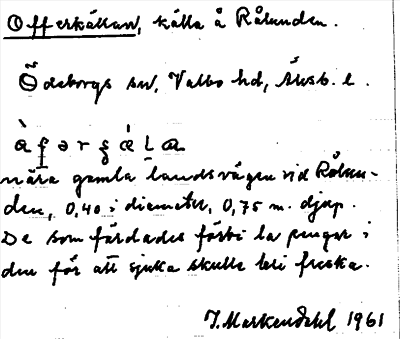 Offerkällan, källa å Rålunden.
Ödeborgs sn, Valbo hd, Älvsb. l.
nära gamla landsvägen vid Rålun-
den, 0,40 i diameter, 0,75 m. djup.
De som färdades förbi la pengar i
den för att sjuka skulle bli friska.
J. Markendahl 1961